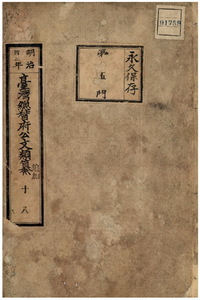 永久保存
第五門
明治
四二年
臺灣總督府公文類纂
十八